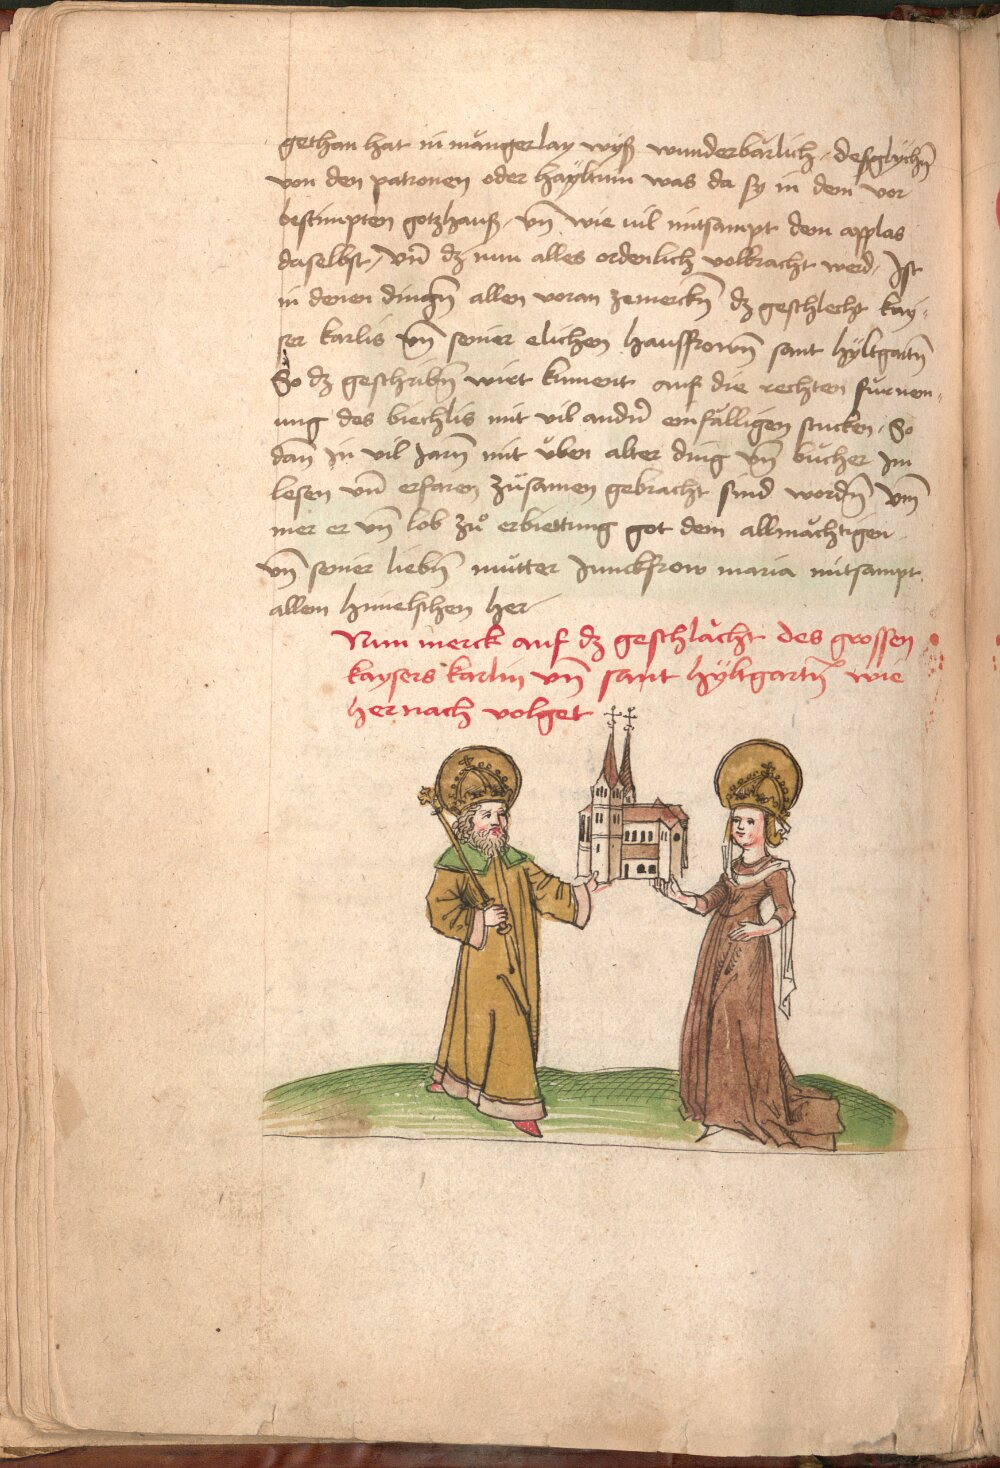 gethan hat in mängerlay wyß wunderbärlich, desglychn̄
von den patronen oder häyltum was da sy in dem vor
bestimpten gotzhauß, vn̄ wie vil mitsampt dem applas
daselbst, vn̄ dz nun alles ordenlich volbracht werd, Ist
in denen dingn̄ allen voran zemerckn̄ dz geschlecht kay-
ser karlis vn̄ seiner elichen haussfrown̄ sant hyltgartn̄
So dz geschribn̄ wirt kument auf die rechten fürnem-
ung des biechlis mit vil andn̄ einfälligen stucken, So
dan̄ in vil Jarn̄ mit üben alter ding vn̄ bücher Im
lesen vn̄ erfaren züsamen gebracht sind wordn̄ vm̄
mer er vn̄ lob zů erbiettung got dem allmächtigen
vn̄ seiner liebn̄ mütter Junckfrow maria mitsampt
allem himelschen her
Nun merck auf dz geschlächt des grossen
kaysers karlin vn̄ sant hyltgartn̄ wie
hernach volget